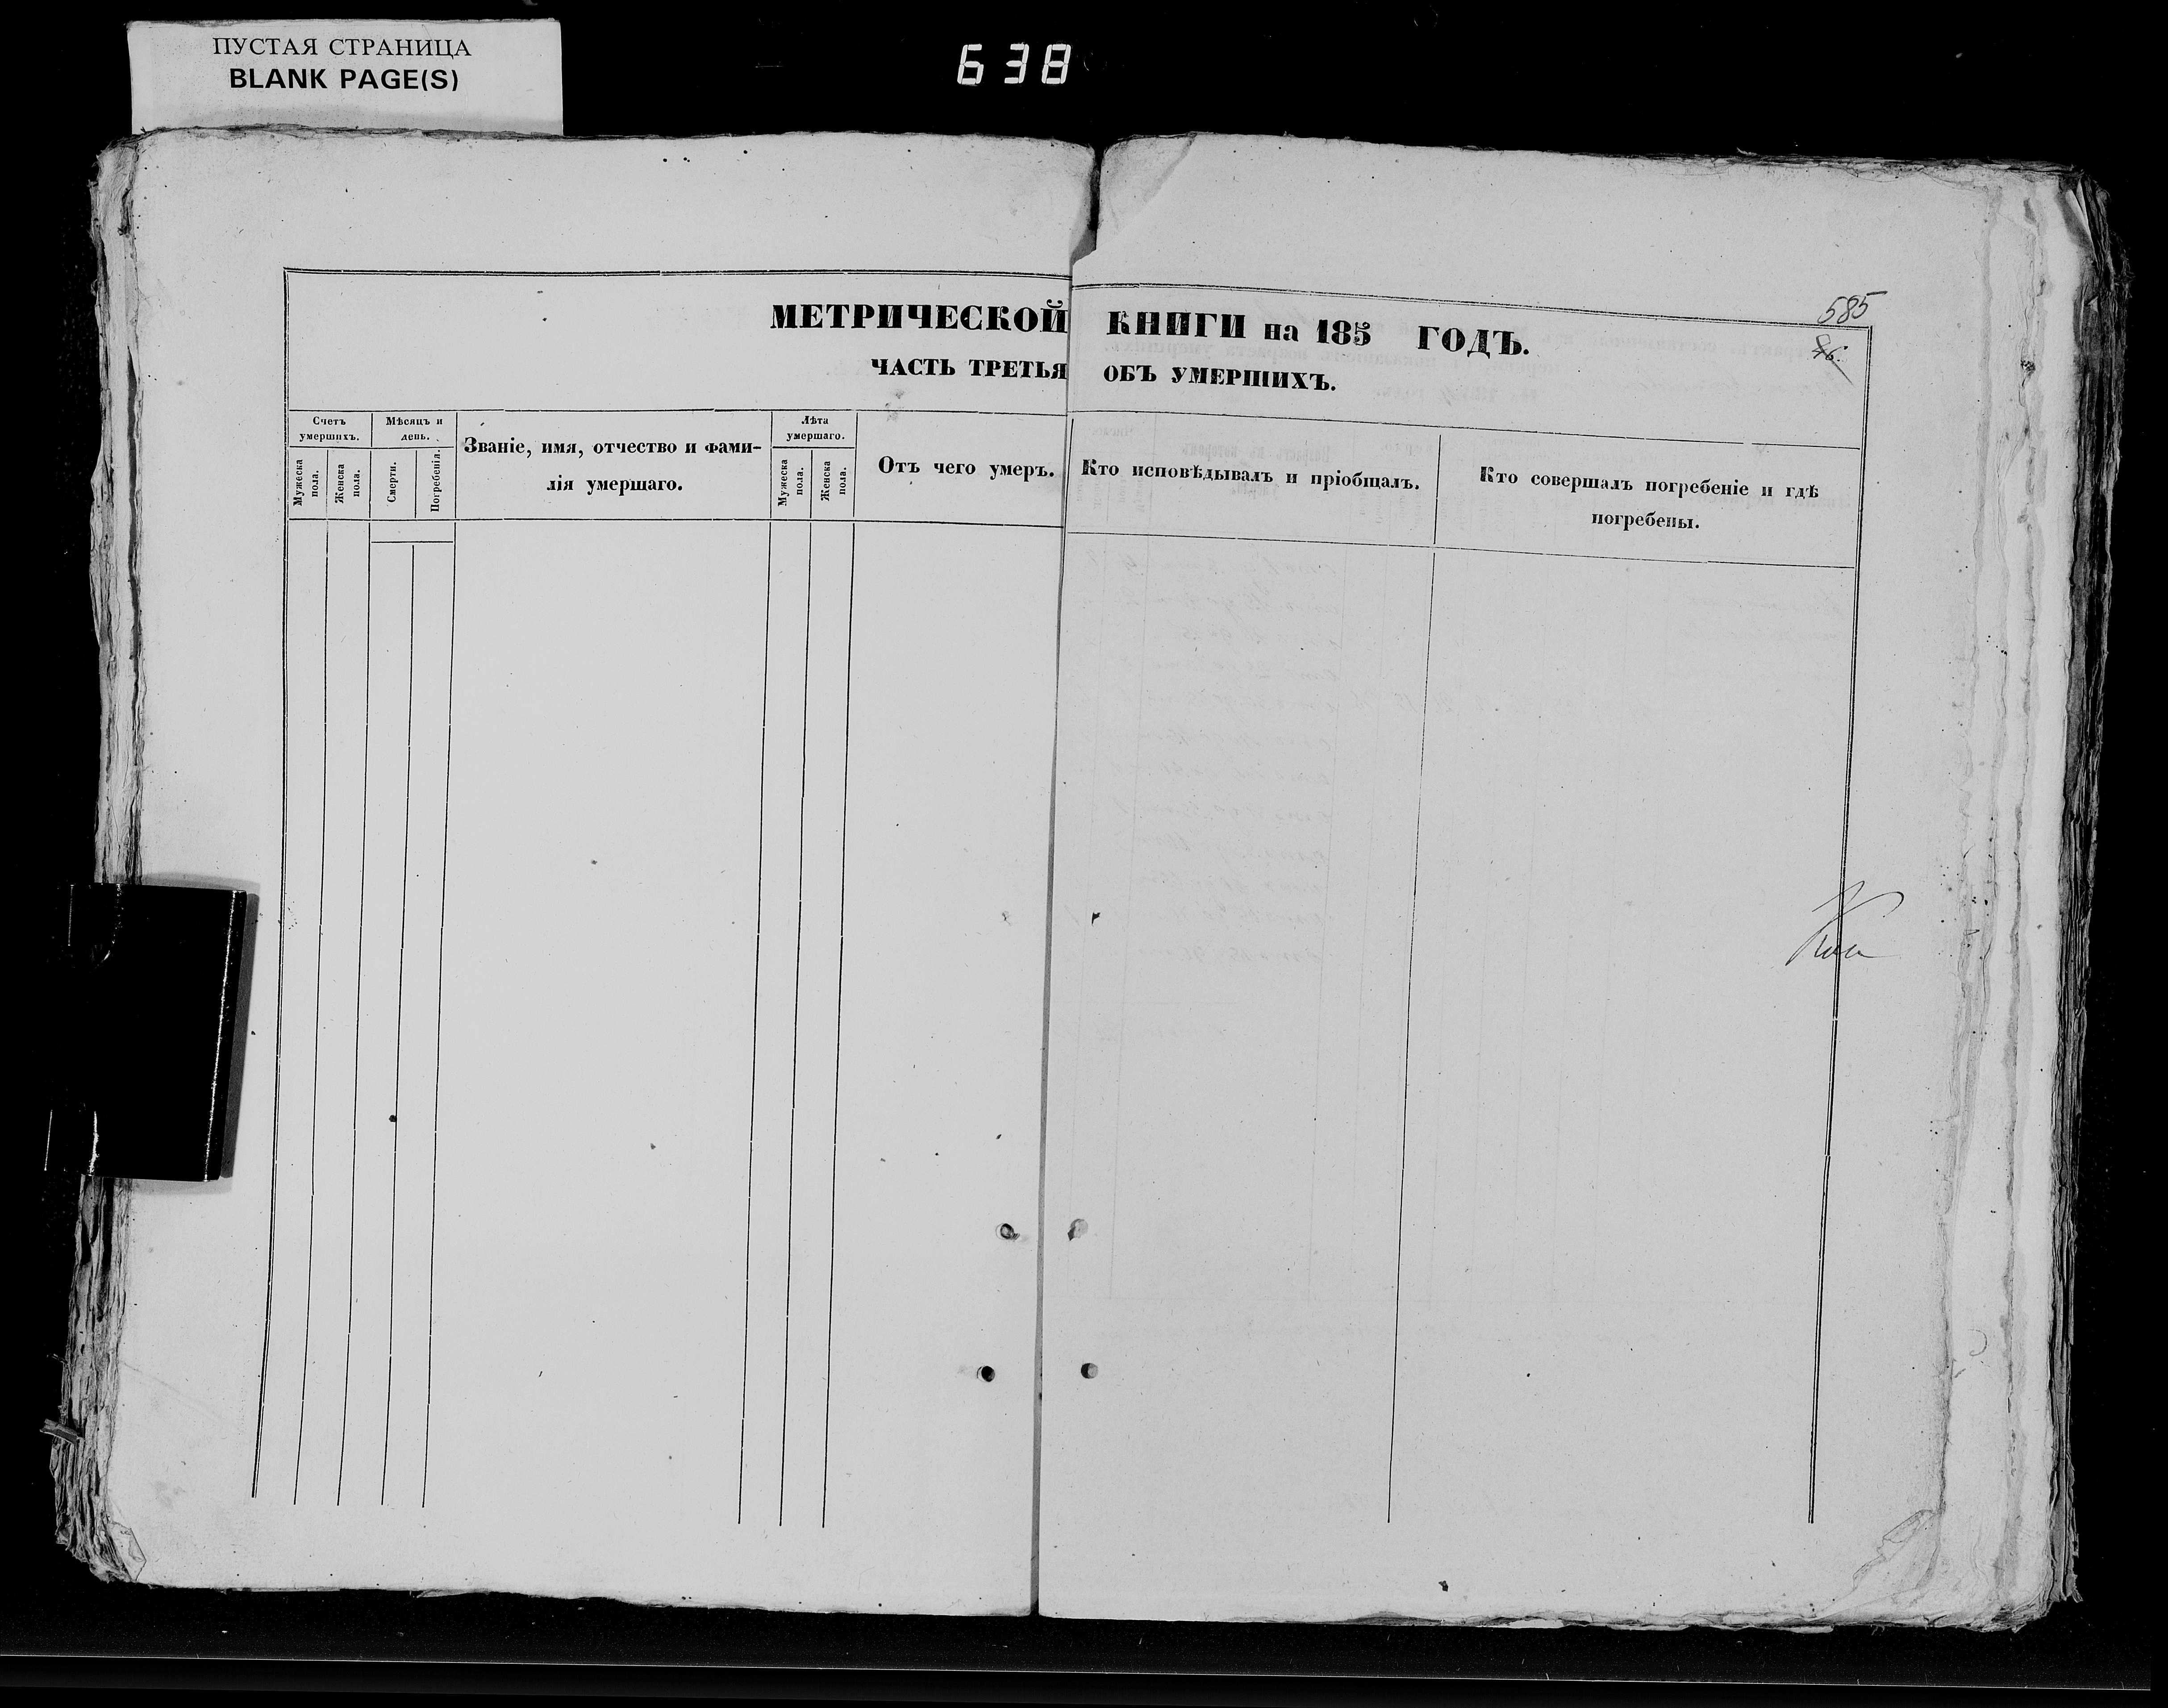 ПУСТАЯ СТРАНИЦА
BLANK PAGE(S)
638
585
МЕТРИЧЕСКОЙ КНИГИ на 185 ГОДЪ.
ЧАСТЬ ТРЕТЬЯ ОБЪ УМЕРШИХЪ.
Счетъ умершихъ.
Мужеска пола.
Женска пола.
Мѣсяцъ и день.
Смерти.
Погребенія.
Званіе, имя, отчество и фами-
лія умершаго.
Лѣта умершаго.
Мужеска пола.
Женска пола.
Отъ чего умеръ.
Кто исповѣдывалъ и пріобщалъ.
Кто совершалъ погребеніе и гдѣ
погребены.